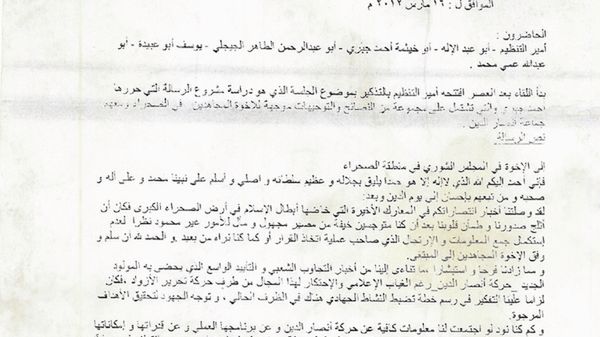 الموافق ل : ١٦ مارس ٢٠١٢ م
الحاضرون :
أمير التنظيم - أبو عبد الإله - أبو خيثمة أحمد جبري - أبو عبدالرحمن الطاهر الجيجلي - يوسف أبو عبيدة - أبو
عبدالله عمي محمد .
بدأ اللقاء بعد العصر افتتحه أمير التنظيم بالتذكير بموضوع الجلسة الذي هو دراسة مشروع الرسالة التي حررها
أحمد والتي تشتمل على مجموعة من النصائح والتوجيهات موجهة للاخوة المجاهدين في الصحراء ومعهم
جماعة أنصار الدين .
نص الرسالة
إلى الإخوة في المجلس الشوري في منطقة الصحراء
فإني أحمد اليكم الله الذي لاإله إلا هو حمدا يليق بجلاله و عظيم سلطانه و اصلي و أسلم على نبينا محمد و على آله و
صحبه و من تبعهم بإحسان إلى يوم الدين وبعد:
لقد وصلتنا أخبار انتصاراتكم في المعارك الأخيرة التي خاضها أبطال الإسلام في أرض الصحراء الكبرى فكان أن
أثلج صدورنا و طمأن قلوبنا بعد أن كنا متوجسين خيفة من مصير مجهول و مآل للأمور غير محمود نظرا لعدم
إستكمال جمع المعلومات و الإرتجال الذي صاحب عملية اتخاذ القرار أو كما كنا نراه من بعيد و الحمد لله ان سلم و
رفق الإخوة المجاهدين إلى المبتغى
و مما زادنا فرحا و استبشارا ما تناهى إلينا من أخبار التجاوب الشعبي و التأييد الواسع الذي يحضى به المولود
الجديد "حركة أنصار الدين رغم الغياب الإعلامي والإحتكار لهذا المجال من طرف حركة تحرير الأزواد ,فكان
لزاما علينا التفكير في رسم خطة تضبط النشاط الجهادي هناك في الظرف الحالي , و توجه الجهود لتحقيق الأهداف
المرجوة.
و كم كنا نود لو اجتمعت لنا معلومات كافية عن حركة أنصار الدين و عن برنامجها العملي و عن قدراتها و إمكاناتها